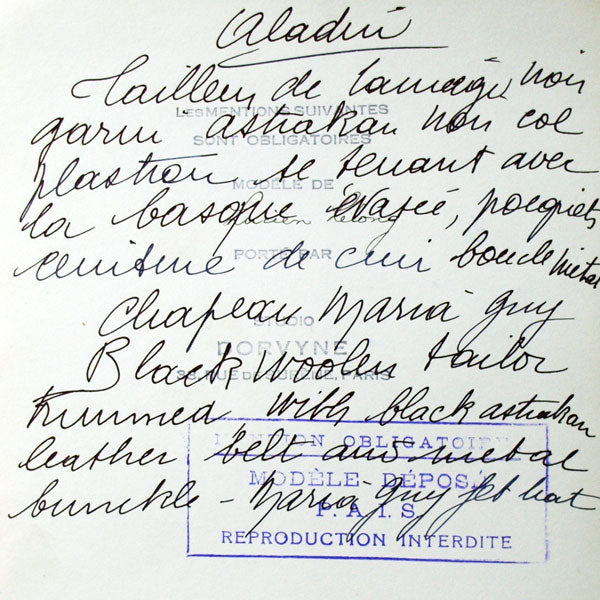 Aladin
Tailleur de lainage noir
LES MENTIONS SUIVANTES
garni astrakan noir col
SONT OBLIGATOIRES
plastron se tenant avec
MODÈLE DE
la basque évasée, poignets
Lucien Lelong
ceinture de cuir boucle metal
PORTÉ PAR
chapeau Maria Guy
STUDIO
DORVYNE
Black woolen tailor
36, RUE DE SURÈNE, PARIS
trimmed with black astrakan
leather belt and metal
MENTION OBLIGATOIRE
MODÈLE DÉPOSÉ
bunckle - Maria Guy felt hat
P.A.I.S.
REPRODUCTION INTERDITE